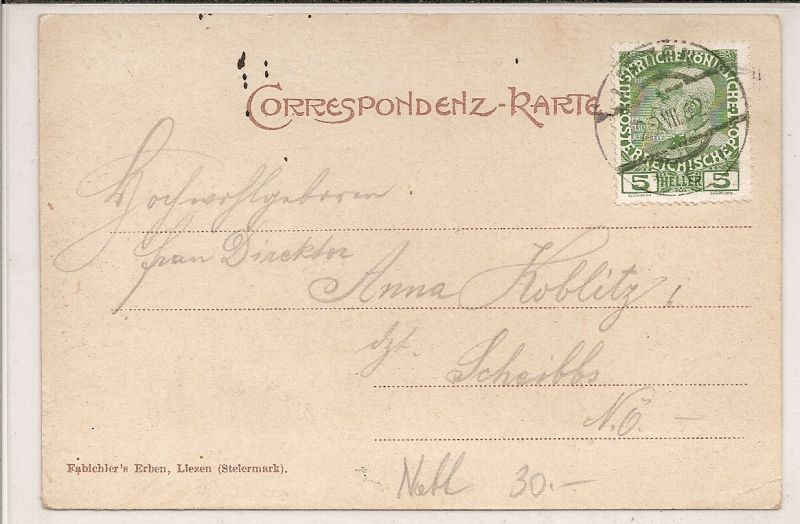 CORRESPONDENZ-KARTE
KAISERLICHE KÖNIGLICHE
ÖSTERREICHISCHE POST
5 HELLER 5
VII
Hochwohlgeboren
Frau Direktor
Anna Koblitz,
dzt. Scheibbs
N.Ö. —
Fabichler's Erben, Liezen (Steiermark).
30.—